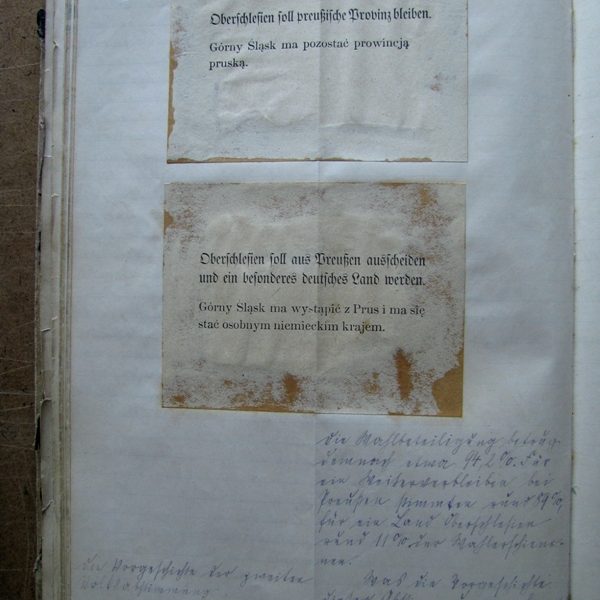 Oberschlesien soll preußische Provinz bleiben.
Górny Śląsk ma pozostać prowincją
pruską.
Oberschlesien soll aus Preußen ausscheiden
und ein besonderes deutsches Land werden.
Górny Sląsk ma wy-tąpić z Prus i ma się
stać osobnym niemieckim krajem.
die Wahlbeteiligung betrug
demnach etwa 94,2%. Für
ein Weiterverbleiben bei
Preußen stimmten rund 89%,
für ein Land Oberschlesien
rund 11% der Wahlerschiene-
nen.
Was die Vorgeschichte
die Vorgeschichte der zweiten
Volksabstimmung